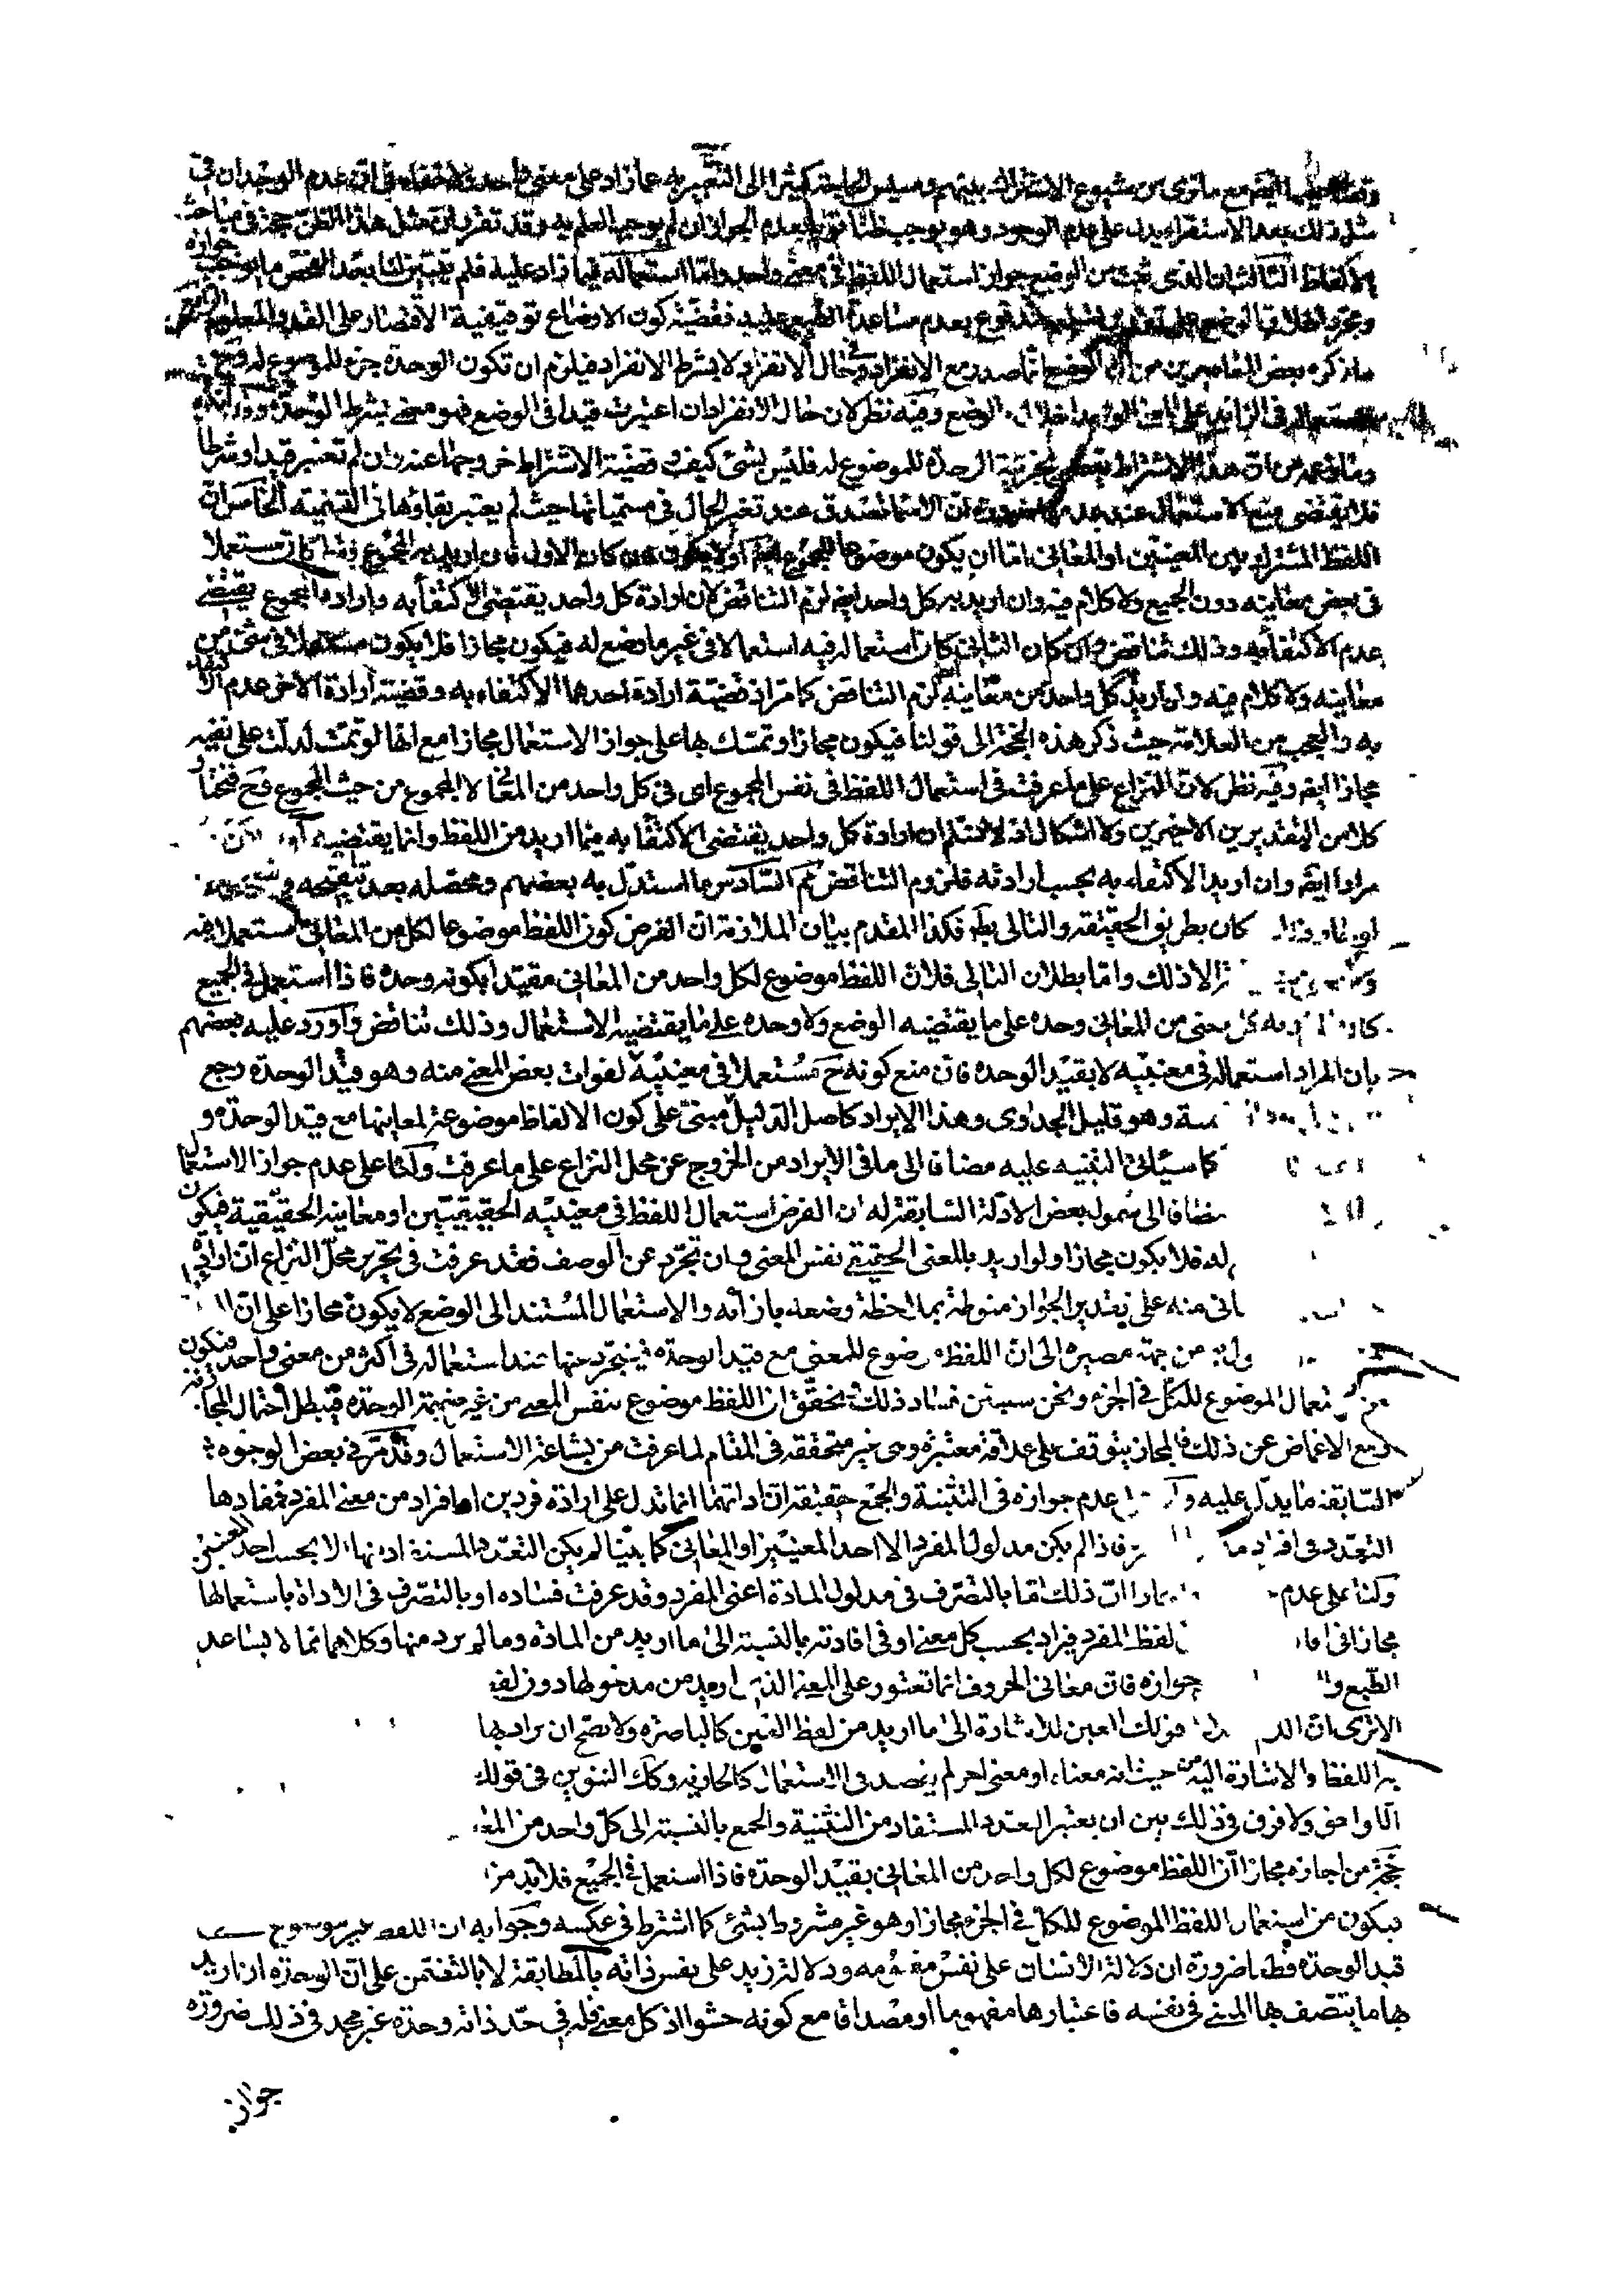 مع ما نرى من شيوع الاشتراك بينهم ومسيس الحاجة كثيرا الى التعبير به عما زاد على معنى واحد ولا خفاء في ان عدم الوجدان في
مثل ذلك بعد الاستقراء يدل على عدم الوجود وهو يوجب ظنا قويا بعدم الجواز ان لم يوجب العلم به وقد تقرر ان مثل هذا الظن حجة في مباحث
الالفاظ الثالث ان الذى ثبت من الوضع جواز استعمال اللفظ فى معنى واحد واما استعماله فيما زاد عليه فلم يتبين لنا بعد الفحص ما يوجب جوازه
الطبع عليه فقضية كون الاوضاع توقيفية الاقتصار على القدر المعلوم الرابع
ما ذكره بعض المعاصرين من ان الوضع انما صدر مع الانفراد وفي حال الانفراد لا بشرط الانفراد فيلزم ان تكون الوحدة جزء للموضوع له
الوضع وفيه نظر لان حال الانفراد ان اعتبرت قيدا فى الوضع فهو معنى شرط الوحدة
من ان هذا الاشتراط يقتضى جزئية الوحدة للموضوع له فليس بشئ كيف وقضية الاشتراط خروجها عنه وان لم تعتبر قيدا او شرطا
فلا يقتضى منع الاستعمال عند عدمها ضرورة ان الاسماء تصدق عند تغير الحال فى مسمياتها حيث لم يعتبر بقاؤها فى التسمية الخامس ان
اللفظ المشترك بين المعنيين او المعانى اما ان يكون موضوعا للمجموع ايضا او لا يكون فان كان الاول فان اريد به المجموع فقط كان مستعملا
فى بعض معانيه دون الجميع ولا كلام فيه وان اريد به كل واحد ايضا لزم التناقض لان ارادة كل واحد يقتضى الاكتفاء به وارادة المجموع يقتضى
عدم الاكتفاء به وذلك تناقض وان كان الثانى كان استعماله فيه استعمالا فى غير ما وضع له فيكون مجازا فلا يكون مستعملا فى شئ من
معانيه ولا كلام فيه وان اريد كل واحد من معانيه لزم التناقض كما مر اذ قضية ارادة احدهما الاكتفاء به وقضية ارادة الاخر عدم الاكتفاء
به والعجب من العلامة حيث ذكر هذه الحجة الى قولنا فيكون مجازا وتمسك بها على جواز الاستعمال مجازا مع انها لو تمت لدلت على نفيه
مجازا ايضا وفيه نظر لان النزاع على ما عرفت فى استعمال اللفظ فى نفس المجموع اى فى كل واحد من المعانى لا المجموع من حيث المجموع فح نختار
كلا من التقديرين الاخيرين ولا اشكال اذ لا نسلم ان ارادة كل واحد يقتضى الاكتفاء به فيما اريد من اللفظ وانما يقتضيه
مرادا ايضا وان اريد الاكتفاء به بحسب ارادته فلزوم التناقض مم السادس ما استدل به بعضهم ومحصله بعد تنقيحه
كان بطريق الحقيقة والتالى بط فكذا المقدم بيان الملازمة ان الفرض كون اللفظ موضوعا لكل من المعانى مستعملا فيه
الا ذلك واما بطلان التالى فلان اللفظ موضوع لكل واحد من المعانى مقيدا بكونه وحده فاذا استعمل فى الجميع
كل معنى من المعانى وحده على ما يقتضيه الوضع ولا وحده على ما يقتضيه الاستعمال وذلك تناقض واورد عليه بعضهم
بان المراد استعماله فى معنييه لا بقيد الوحدة فان منع كونه ح مستعملا فى معنييه لفوات بعض المعنى منه وهو قيد الوحدة رجع
وهو قليل الجدوى وهذا الايراد كاصل الدليل مبنى على كون الالفاظ موضوعة لمعانيها مع قيد الوحدة و
كما سيأتى التنبيه عليه مضافا الى ما فى الايراد من الخروج عن محل النزاع على ما عرفت ولنا على عدم جواز الاستعمال
مضافا الى شمول بعض الادلة السابقة له ان الفرض استعمال اللفظ فى معنييه الحقيقيين او معانيه الحقيقية فيكون
له فلا يكون مجازا ولو اريد بالمعنى الحقيقى نفس المعنى وان تجرد عن الوصف فقد عرفت فى تحرير محل النزاع ان ارادة
منه على تقدير الجواز منوطة بملاحظة وضعه بازائه والاستعمال المستند الى الوضع لا يكون مجازا على ان
من جهة مصيره الى ان اللفظ موضوع للمعنى مع قيد الوحدة فيتجرد عنها عند استعماله فى اكثر من معنى واحد فيكون
من استعمال الموضوع للكل فى الجزء ونحن سنبين فساد ذلك بتحقق ان اللفظ موضوع لنفس المعنى من غير ضميمة الوحدة فيبطل احتمال المجازية
مع الاغماض عن ذلك فالمجاز يتوقف على علاقة معتبرة وهى غير متحققة فى المقام لما عرفت من بشاعة الاستعمال وقد مر فى بعض الوجوه
السابقة ما يدل عليه عدم جوازه فى التثنية والجمع حقيقة ان اداتهما انما تدل على ارادة فردين او افراد من معنى المفرد فمفادها
التعدد فى افراد فاذا لم يكن مدلول المفرد الا احد المعنيين او المعانى كما بينا لم يكن التعدد المستفاد منها الا بحسب احد المعنيين
ولنا على عدم ان ذلك اما بالتصرف فى مدلول المادة اعنى المفرد وقد عرفت فساده او بالتصرف فى الاداة باستعمالها
مجازا فى لفظ المفرد فيراد بحسب كل معنى او فى افادته بالنسبة الى ما اريد من المادة وما لم يرد منها وكلاهما مما لا يساعد
الطبع جوازه فان معانى الحروف انما تعتور على المعنى الذى اريد من مدخولها دون
الا ترى ان قولك العين للاشارة الى ما اريد من لفظ العين كالباصرة ولا يصح ان يراد بها
اللفظ والاشارة اليه من حيث انه معناه او معنى اخر لم يقصد فى الاستعمال كالجارية وكك التنوين فى قولك
ولا فرق فى ذلك بين ان يعتبر التعدد المستفاد من التثنية والجمع بالنسبة الى كل واحد من
حجة من اجازه مجازا ان اللفظ موضوع لكل واحد من المعانى بقيد الوحدة فاذا استعمل فى الجميع فلا بد من
فيكون من استعمال اللفظ الموضوع للكل فى الجزء مجازا وهو غير مشروط بشئ كما اشترط فى عكسه وجوابه ان اللفظ غير موضوع
قيد الوحدة قطعا ضرورة ان دلالة الانسان على نفس مفهومه ودلالة زيد على نفس ذاته بالمطابقة لا بالتضمن على ان الوحدة ان اريد
بها ما يتصف بها المعنى فى نفسه فاعتبارها مفهوما او مصداقا مع كونه حشوا اذ كل معنى فله فى حد ذاته وحدة غير مجد فى ذلك ضرورة
جواز